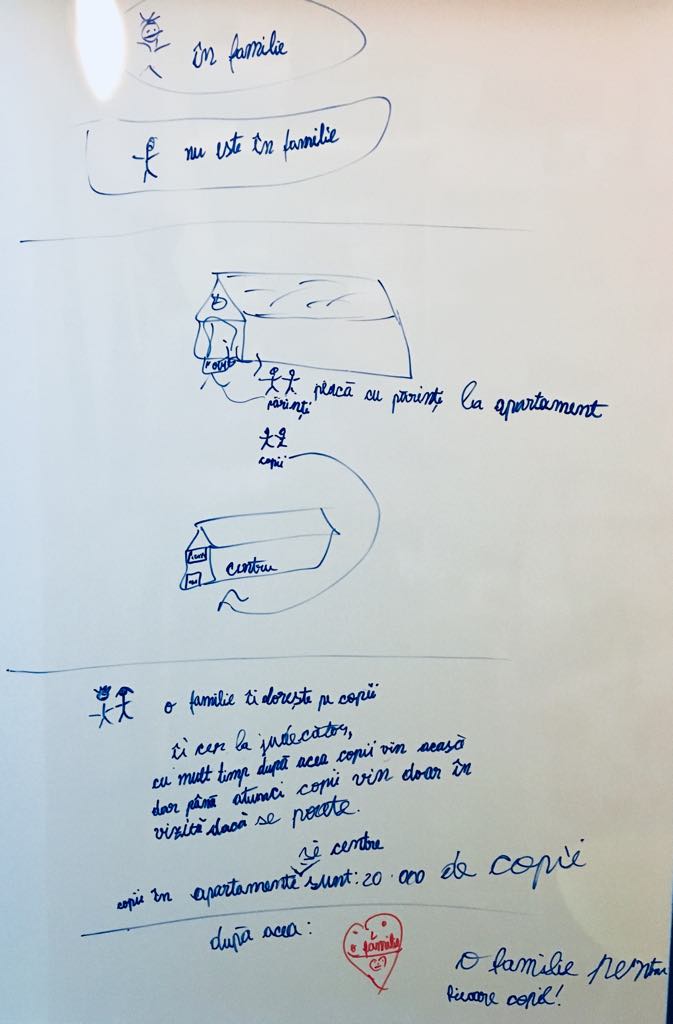 în familie
nu este în familie
părinți
pleacă cu părinți la apartament
copii
centru
o familie îi dorește pe copii
îi cer la judecător,
cu mult timp după acea copii vin acasă
doar până atunci copii vin doar în
vizită dacă se poate.
si centre
copii în apartamente sunt: 20.000 de copii
după acea:
o familie
o familie pentru
fiecare copil!